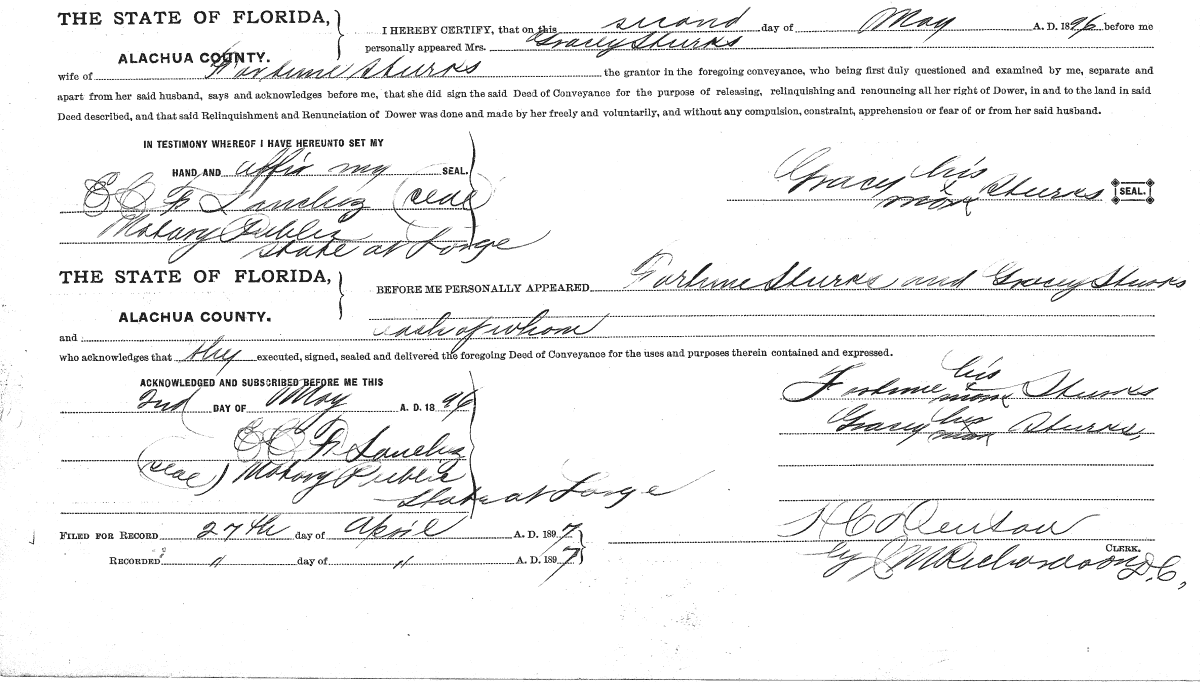 THE STATE OF FLORIDA,
ALACHUA COUNTY.
I HEREBY CERTIFY, that on this second day of May A. D. 1896 before me
personally appeared Mrs. Gracey Sturks
wife of Fortune Sturks the grantor in the foregoing conveyance, who being first duly questioned and examined by me, separate and
apart from her said husband, says and acknowledges before me, that she did sign the said Deed of Conveyance for the purpose of releasing, relinquishing and renouncing all her right of Dower, in and to the land in said
Deed described, and that said Relinquishment and Renunciation of Dower was done and made by her freely and voluntarily, and without any compulsion, constraint, apprehension or fear of or from her said husband.
IN TESTIMONY WHEREOF I HAVE HEREUNTO SET MY
HAND AND affix my SEAL.
E C F Sanchez (seal)
Notary Public
State at Large
his
Gracy x Sturks SEAL.
mark
THE STATE OF FLORIDA,
ALACHUA COUNTY.
BEFORE ME PERSONALLY APPEARED Fortune Sturks and Gracey Sturks
and each of whom
who acknowledges that they executed, signed, sealed and delivered the foregoing Deed of Conveyance for the uses and purposes therein contained and expressed.
ACKNOWLEDGED AND SUBSCRIBED BEFORE ME THIS
2nd DAY OF May A. D. 1896
E C F Sanchez
(seal) Notary Public
State at Large
his
Fortune x Sturks
mark
his
Gracey x Sturks
mark
FILED FOR RECORD 27th day of April A. D. 1897
RECORDED " day of " A. D. 1897
H C Denton
CLERK.
by J M Richardson D. C,